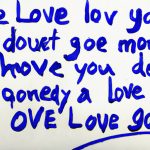 e Love lov yo
douet goe mor
move you de
qonedy a love
OVE Love go